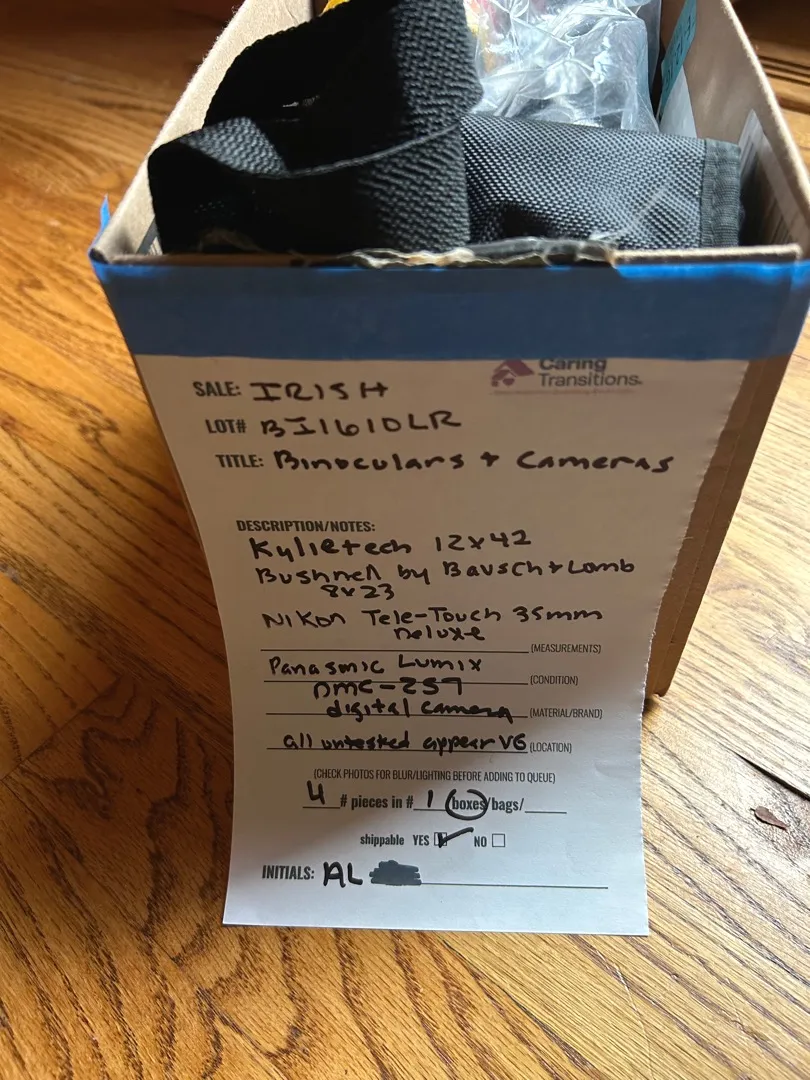 Caring
Transitions
SALE: IRISH
LOT# BJ1610LR
TITLE: Binoculars + Cameras
DESCRIPTION/NOTES:
Kylietech 12x42
Bushnell by Bausch + Lomb
8x23
Nikon Tele-Touch 35mm
Deluxe
(MEASUREMENTS)
Panasonic Lumix
(CONDITION)
DMC-ZS7
digital camera (MATERIAL/BRAND)
all untested appear VG (LOCATION)
(CHECK PHOTOS FOR BLUR/LIGHTING BEFORE ADDING TO QUEUE)
4 # pieces in # 1 boxes/bags/
shippable YES NO
INITIALS: AL